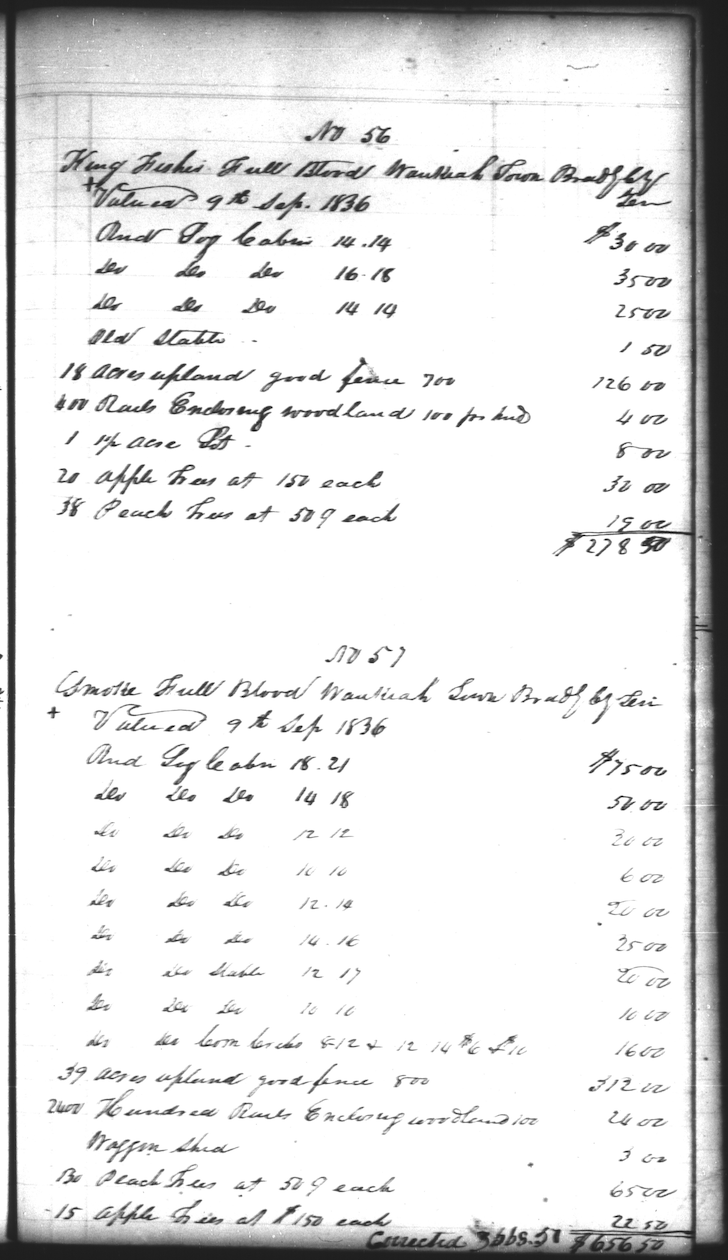 No 56
King Fisher Full Blood Waukiah Town Bradf Cy
Ten
+ Valued 9th Sep. 1836
Rnd Log Cabin 14.14 $30 00
Do Do Do 16-18 35 00
Do Do Do 14 14 25 00
Old Stable 1 50
18 Acres upland good fence 700 126 00
400 Rails Enclosing woodland 100 per hnd 4 00
1 acre Lot 8 00
20 apple trees at 150 each 30 00
38 Peach trees at 50 each 19 00
$278 50
No 57
Smoke Full Blood Waukiah Town Bradf Cy Ten
+ Valued 9th Sep 1836
Rnd Log Cabin 18.21 $75 00
Do Do Do 14 18 50.00
Do Do Do 12 12 00
Do Do Do 10 10 6 00
Do Do Do 12.14 20 00
Do Do Do 14.16 25 00
Do Do Stable 12 17 20 00
Do Do Do 10 10 10 00
Do Do Corn Cribs 8-12 & 12 14 $6 & $10 16 00
39 acres upland good fence 800 312 00
2400 Hundred Rails Enclosing woodland 100 24 00
Waggon Shed 3 00
130 Peach trees at 50 each 65 00
15 apple trees at $150 each 22 50
Corrected 668.50 $656 50